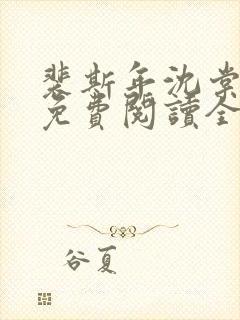 裴斯年沈棠
免費閱讀全
谷夏